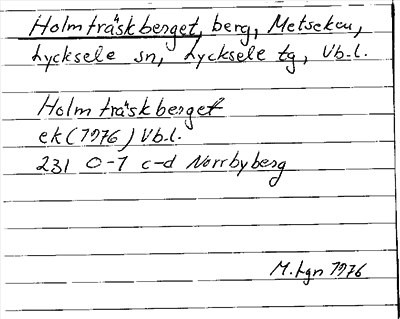 Holmträskberget, berg, Metseken,
Lycksele sn, Lycksele tg, Vb.l.
Holmträskberget
ek (1976) Vb.l.
231 0-1 c-d Norrbyberg
M.Lgn 1976